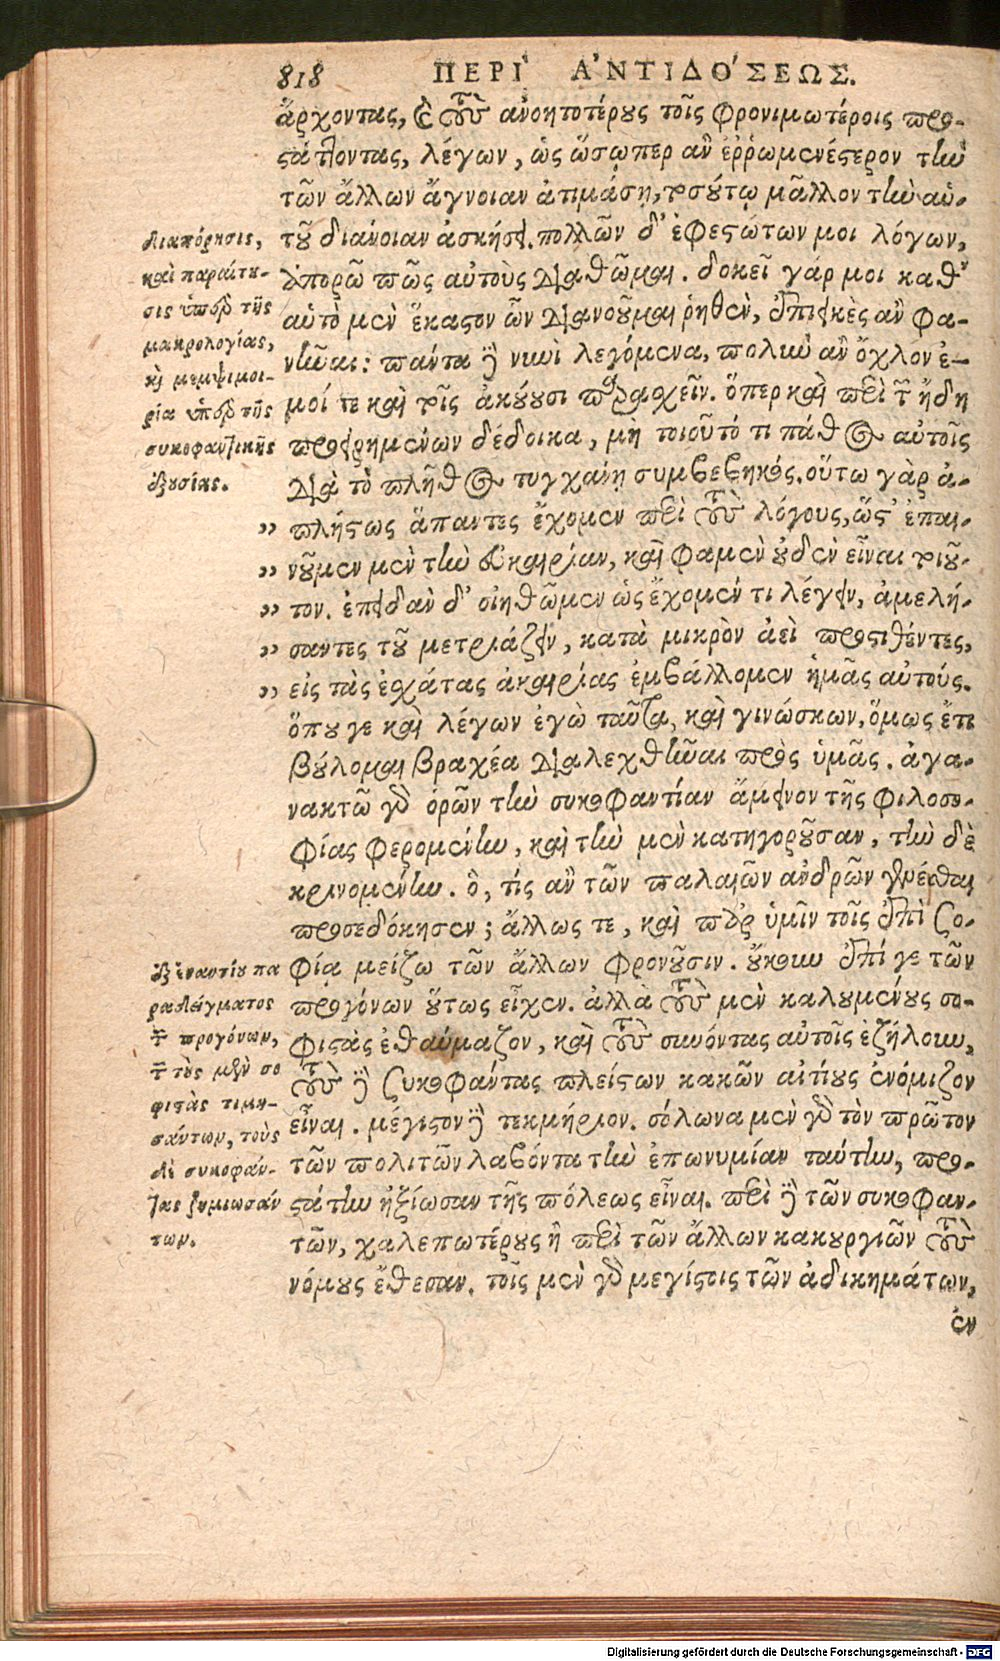 818 ΠΕΡΙ ἈΝΤΙΔΌΣΕΩΣ.
ἄρχοντας, καὶ τοὺς ἀνοητοτέρους τοῖς φρονιμωτέροις προ-
στάττοντας, λέγων, ὡς ὅσῳπερ ἂν ἐῤῥωμενέστερον τὴν
τῶν ἄλλων ἄγνοιαν ἀτιμάσῃ, τοσούτῳ μᾶλλον τὴν αὑ-
τοῦ διάνοιαν ἀσκήσει. πολλῶν δ' ἐφεστώτων μοι λόγων,
ἀπορῶ πῶς αὐτοὺς διαθῶμαι. δοκεῖ γάρ μοι καθ'
αὑτὸ μὲν ἕκαστον ὧν διανοοῦμαι ῥηθὲν, ἐπιεικὲς ἂν φα-
νῆναι: πάντα δὲ νυνὶ λεγόμενα, πολὺν ἂν ὄχλον ἐ-
μοί τε καὶ τοῖς ἀκούουσι παρασχεῖν. ὅπερ καὶ περὶ τῶν ἤδη
προειρημένων δέδοικα, μὴ τοιοῦτό τι πάθος αὐτοῖς
διὰ τὸ πλῆθος τυγχάνῃ συμβεβηκός. οὕτω γὰρ ἀ-
πλήστως ἅπαντες ἔχομεν περὶ τοὺς λόγους, ὥστ' ἐπαι-
νοῦμεν μὲν τὴν εὐκαιρίαν, καὶ φαμὲν οὐδὲν εἶναι τοιοῦ-
τον. ἐπειδὰν δ' οἰηθῶμεν ὡς ἔχομέν τι λέγειν, ἀμελή-
σαντες τοῦ μετριάζειν, κατὰ μικρὸν ἀεὶ προστιθέντες,
εἰς τὰς ἐσχάτας ἀκαιρίας ἐμβάλλομεν ἡμᾶς αὐτούς.
ὅπου γε καὶ λέγων ἐγὼ ταῦτα, καὶ γινώσκων, ὅμως ἔτι
βούλομαι βραχέα διαλεχθῆναι πρὸς ὑμᾶς. ἀγα-
νακτῶ γὰρ ὁρῶν τὴν συκοφαντίαν ἄμεινον τῆς φιλοσο-
φίας φερομένην, καὶ τὴν μὲν κατηγοροῦσαν, τὴν δὲ
κρινομένην. ὃ, τίς ἂν τῶν παλαιῶν ἀνδρῶν γενέσθαι
προσεδόκησεν; ἄλλως τε, καὶ παρ' ὑμῖν τοῖς ἐπὶ σο-
φίᾳ μείζω τῶν ἄλλων φρονοῦσιν. οὔκουν ἐπί γε τῶν
προγόνων οὕτως εἶχεν. ἀλλὰ τοὺς μὲν καλουμένους σο-
φιστὰς ἐθαύμαζον, καὶ τοὺς συνόντας αὐτοῖς ἐζήλουν,
τοὺς δὲ συκοφάντας πλείστων κακῶν αἰτίους ἐνόμιζον
εἶναι. μέγιστον δὲ τεκμήριον. σόλωνα μὲν γὰρ τὸν πρῶτον
τῶν πολιτῶν λαβόντα τὴν ἐπωνυμίαν ταύτην, προ-
στάτην ἠξίωσαν τῆς πόλεως εἶναι. περὶ δὲ τῶν συκοφαν-
τῶν, χαλεπωτέρους ἢ περὶ τῶν ἄλλων κακουργιῶν τοὺς
νόμους ἔθεσαν. τοῖς μὲν γὰρ μεγίστοις τῶν ἀδικημάτων,
ἐν
διαπόρησις,
καὶ παραίτη-
σις ὑπὲρ τῆς
μακρολογίας,
καὶ μεμψιμοι-
ρία ὑπὲρ τῆς
συκοφαντικῆς
ἐξουσίας.
ἐξ ἐναντίου πα
ραδείγματος
τῶν προγόνων,
τῶν τοὺς μὲν σο
φιστὰς τιμη-
σάντων, τοὺς
δὲ συκοφάν-
τας ζημιωσάν
των.
Digitalisierung gefördert durch die Deutsche Forschungsgemeinschaft - DFG